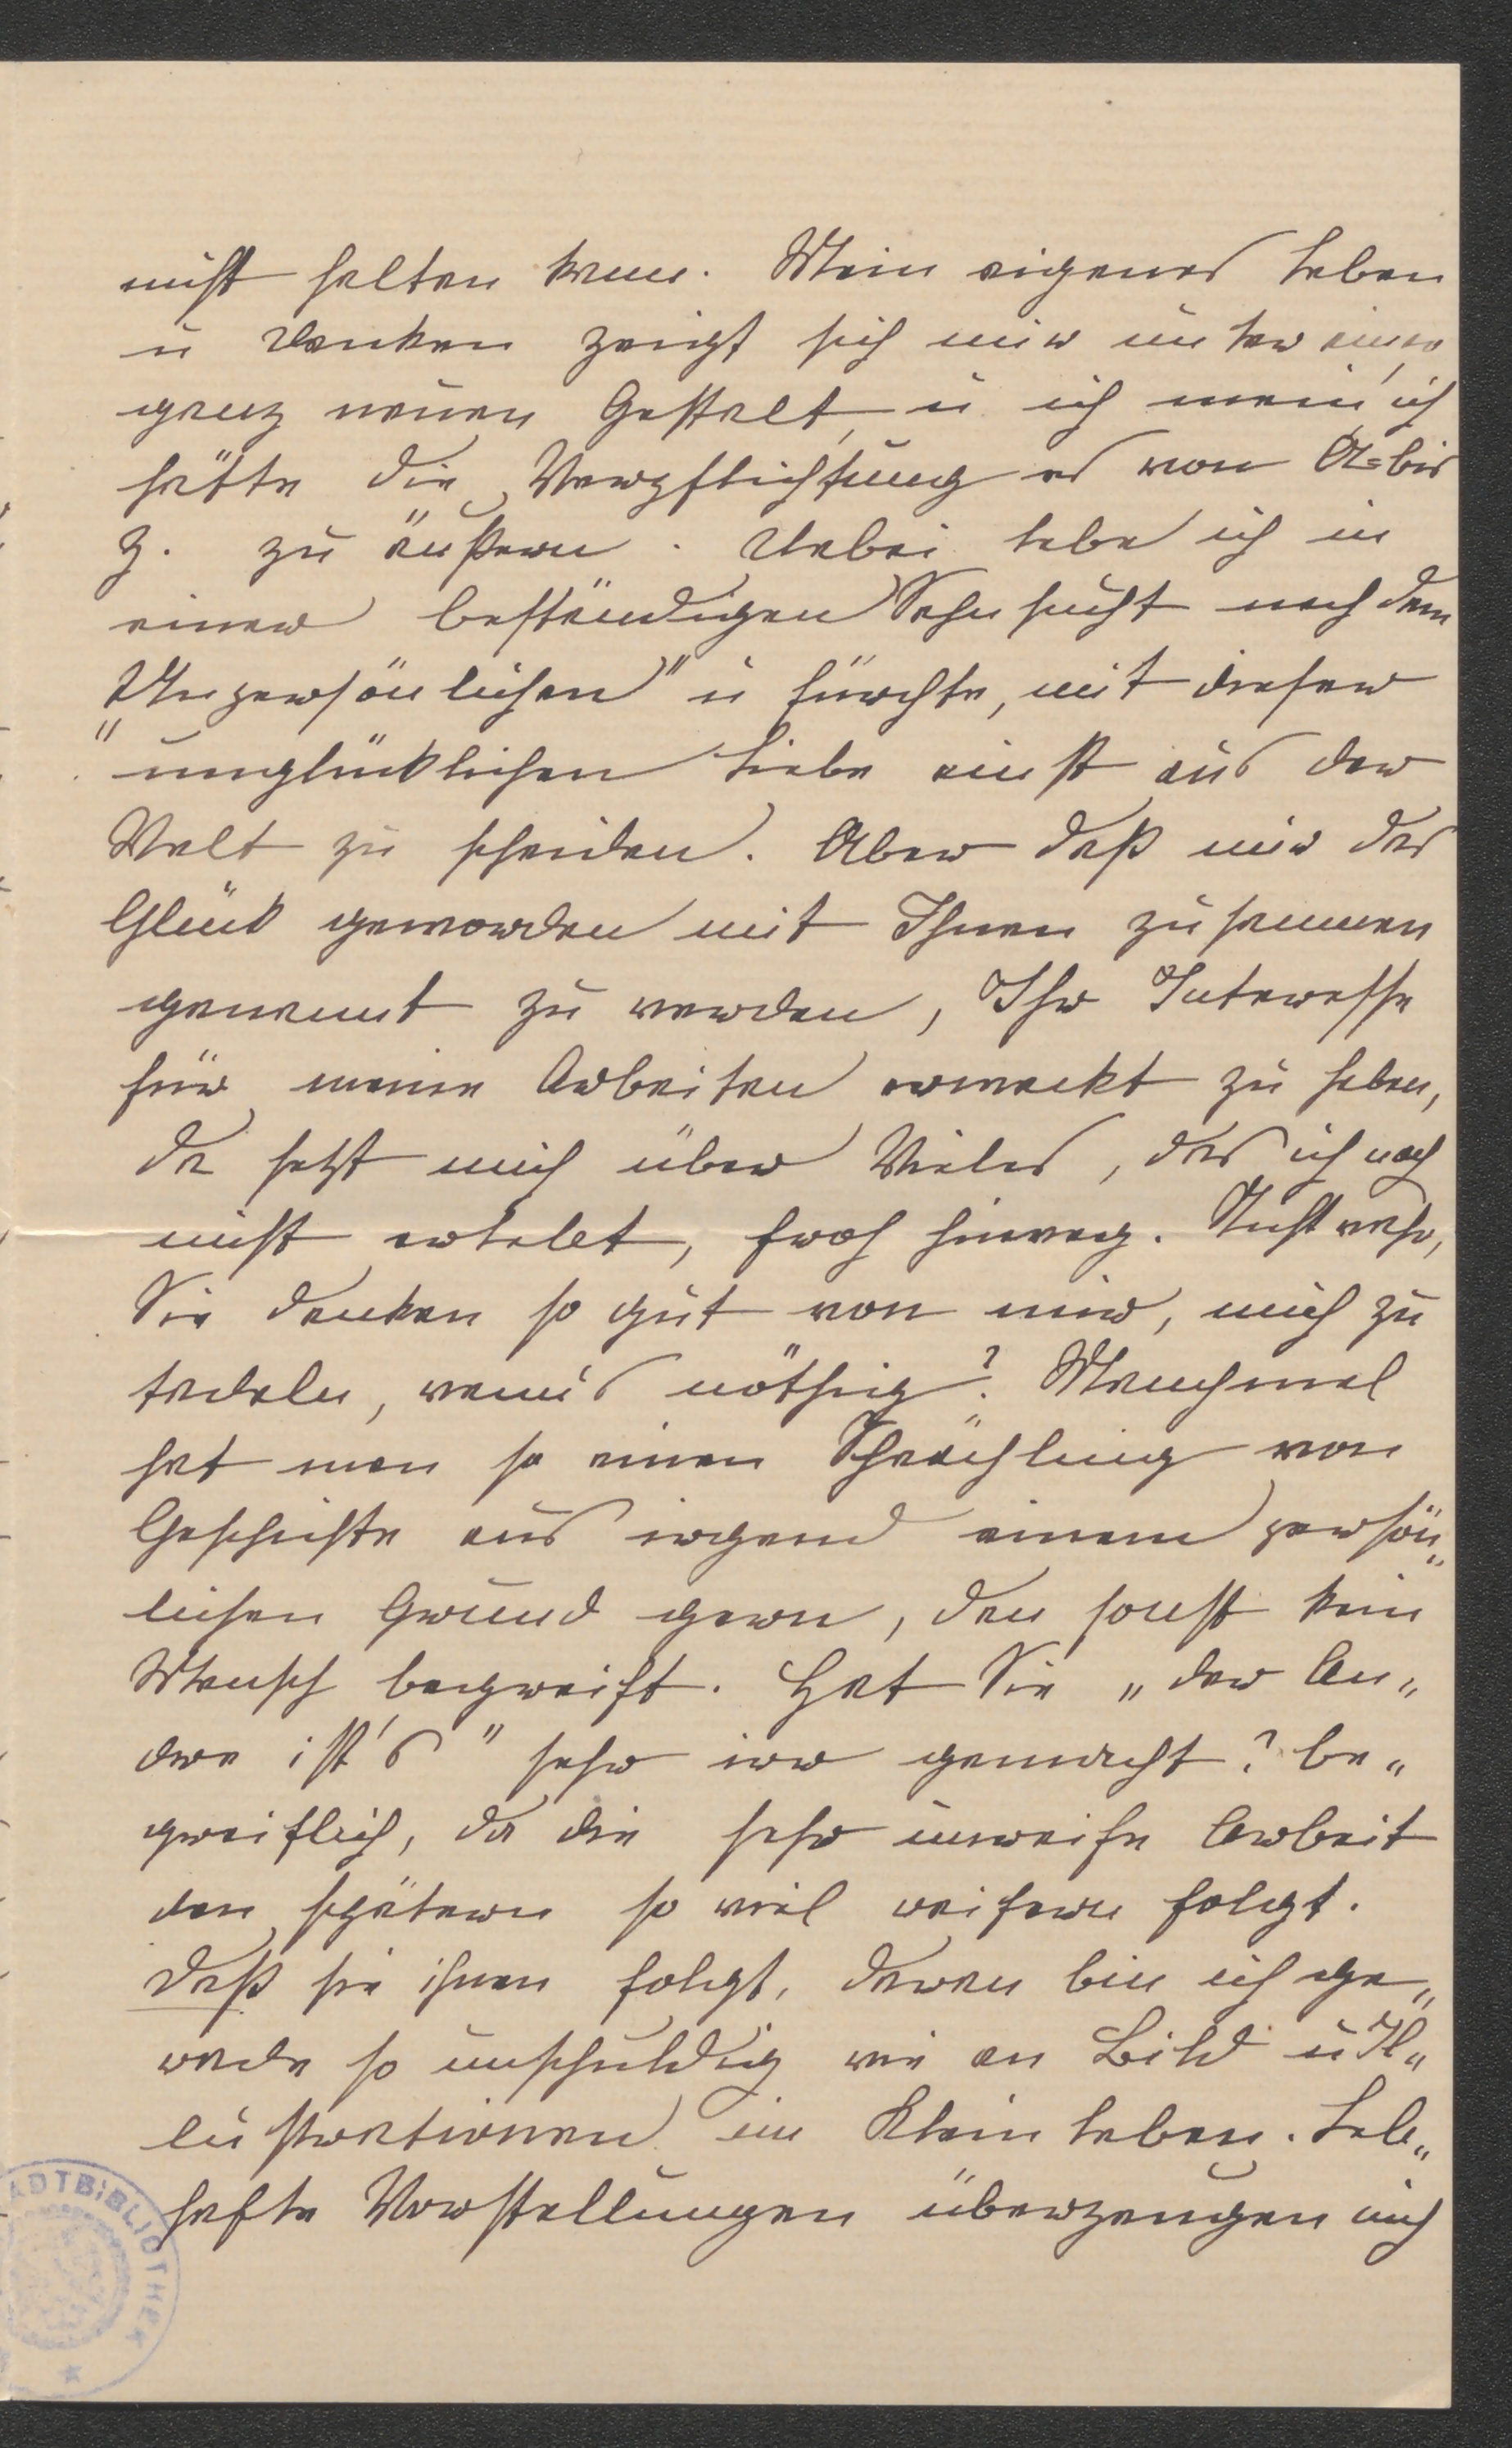 nicht halten kann. Mein eigenes Leben
u Denken zeigt sich mir unter einer
ganz neuen Gestalt, u ich mein' ich
hätte die Verpflichtung es von A=bis
Z. zu äußern. Dabei lebe ich in
einer beständigen Sehnsucht nach dem
„Unpersönlichen" u fürchte, mit dieser
unglücklichen Liebe einst aus der
Welt zu scheiden. Aber daß mir das
Glück geworden mit Ihnen zusammen
genannt zu werden, Ihr Interesse
für meine Arbeiten erweckt zu haben,
da hebt mich über Vieles, das ich noch
nicht erlebt, froh hinweg. Nicht wahr,
Sie denken so gut von mir, mich zu
tadeln, wenn's nöthig? Manchmal
hat man so einen Schwächling von
Geschichte aus irgend einem persön„
lichen Grund gern, den sonst kein
Mensch begreift. Hat Sie „der An„
dre ist's" sehr irr gemacht? be„
greiflich, da die sehr unreife Arbeit
den spätern so viel reifern folgt.
Daß sie ihnen folgt, daran bin ich ge„
rade so unschuldig wie an Bild u Il„
lustrationen im Kleinleben. Leb„
hafte Vorstellungen überzeugen mich
STADTBIBLIOTHEK